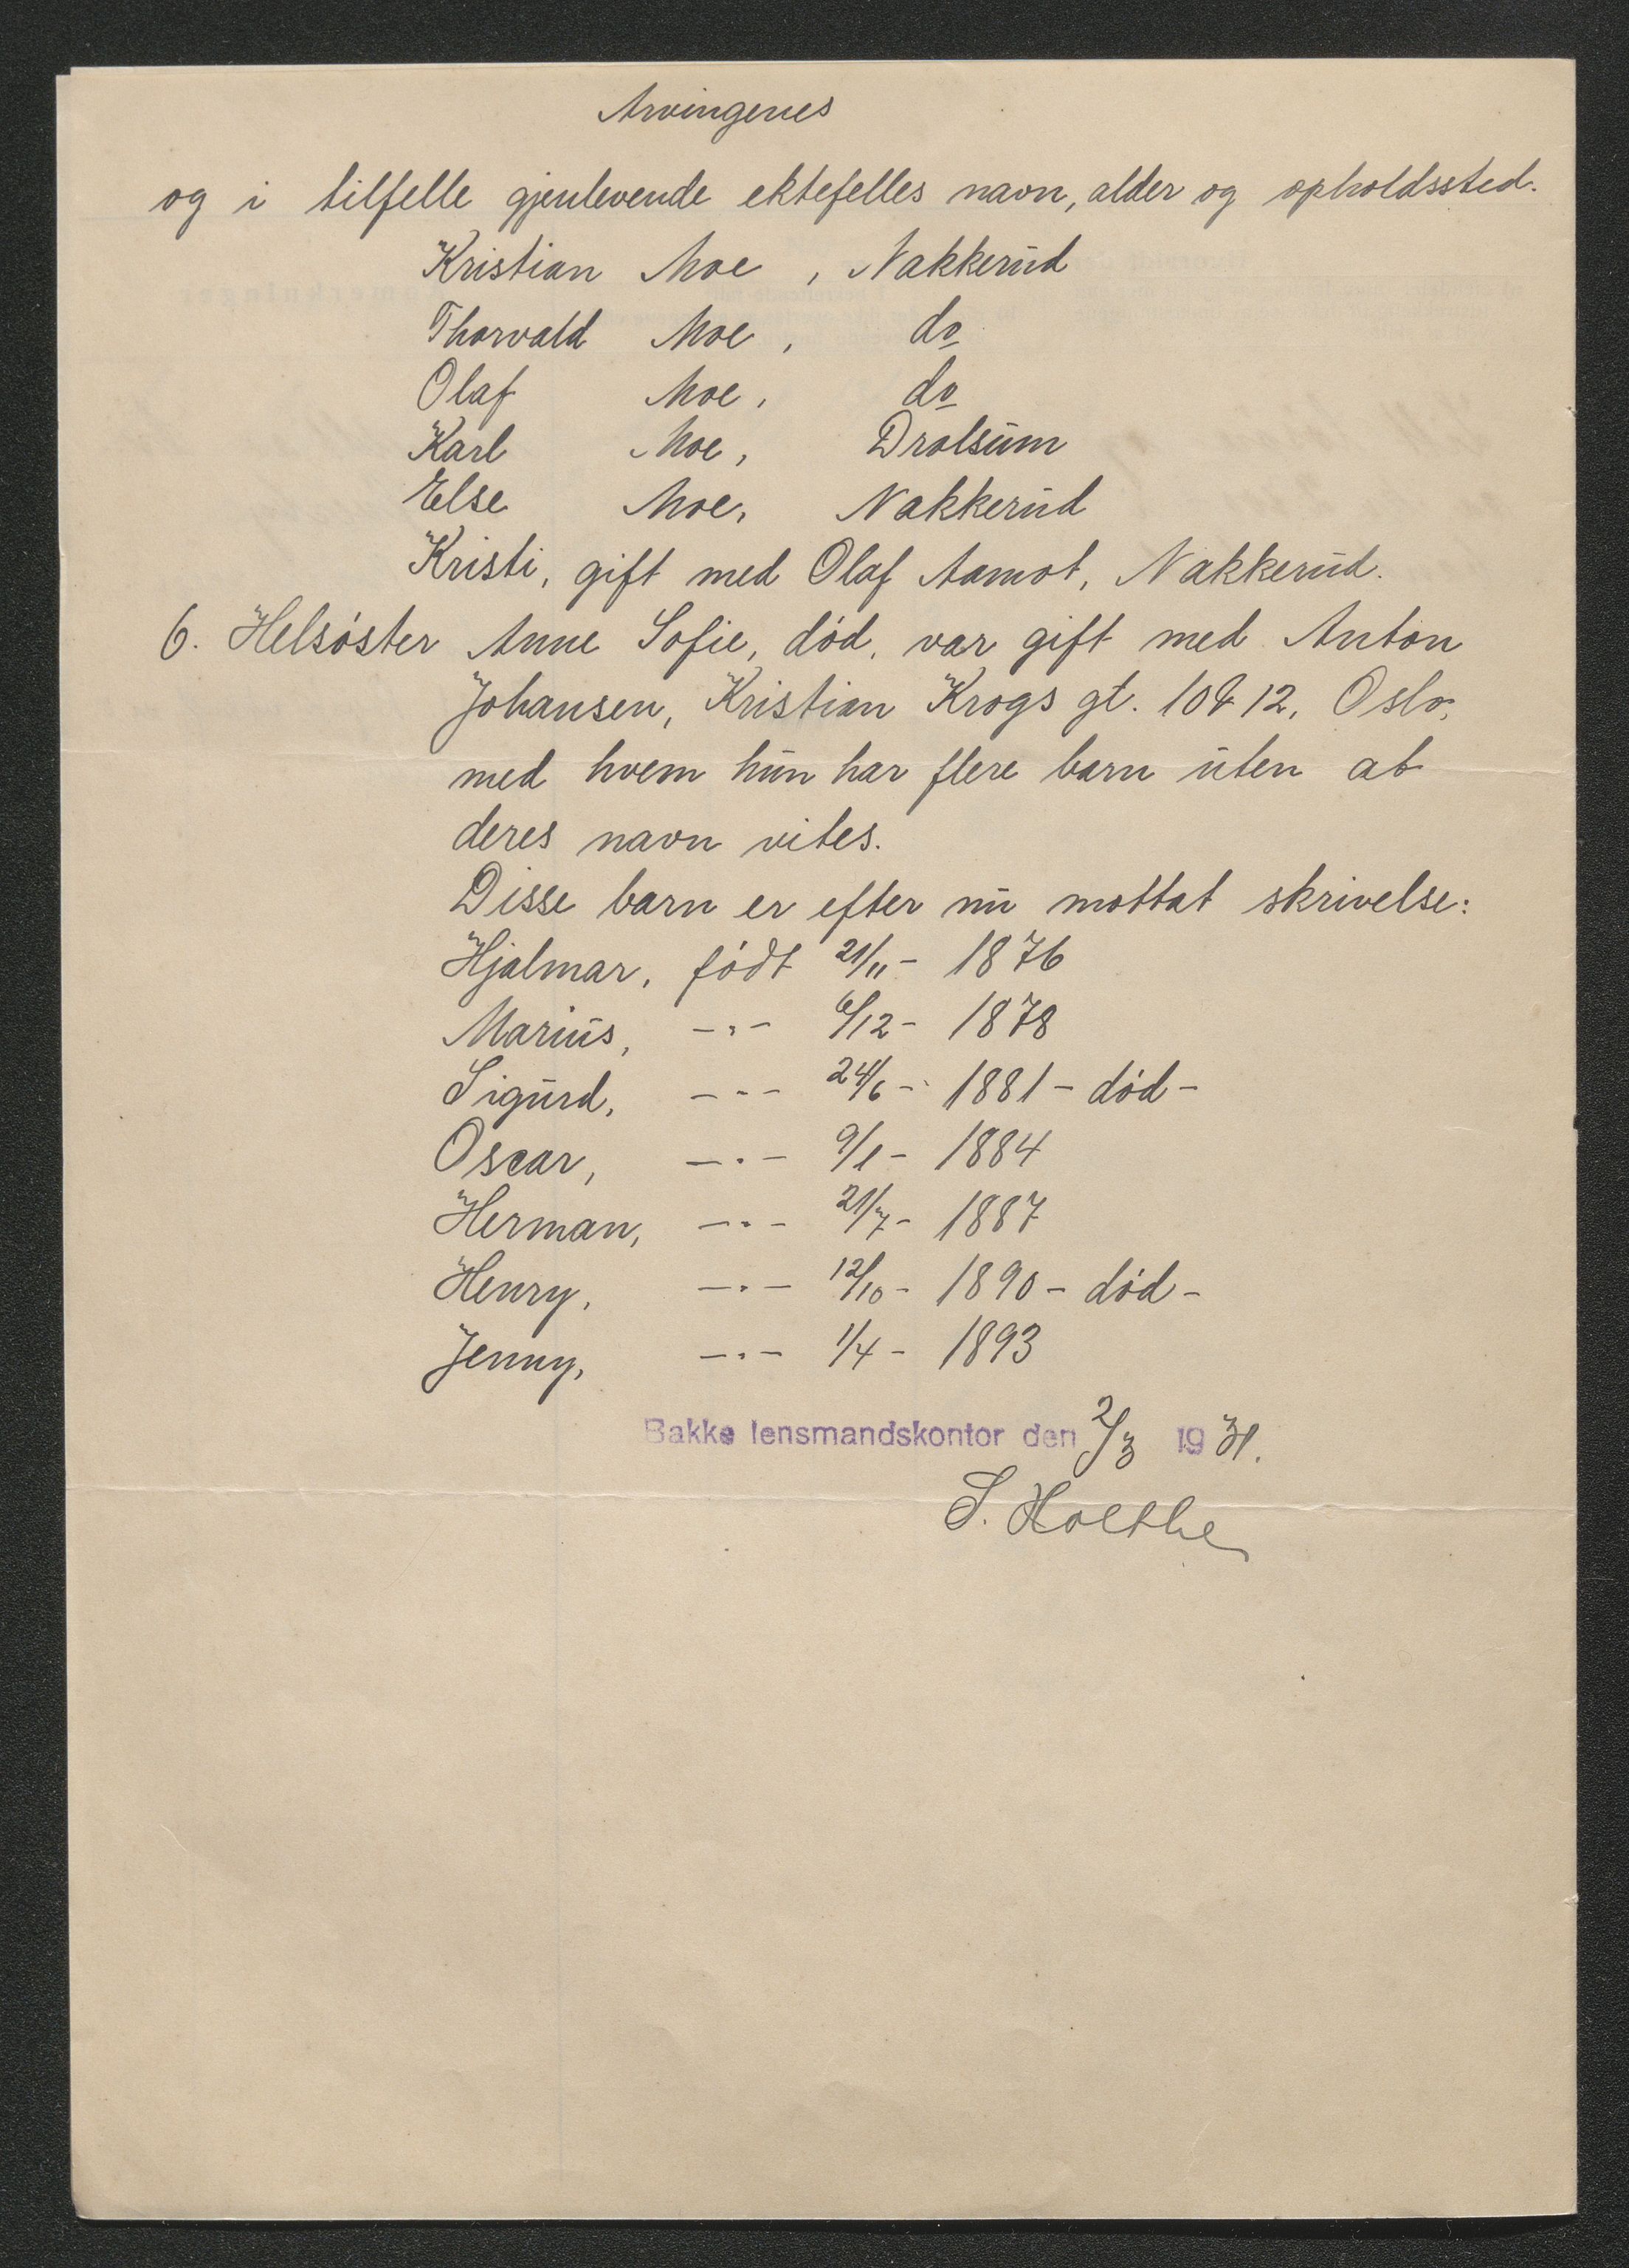 Arvingenes
og i tilfelle gjenlevende ektefelles navn, alder og opholdssted.
Kristian Moe, Nakkerud
Thorvald Moe, do
Olaf Moe, do
Karl Moe, Drolsum
Else Moe, Nakkerud
Kristi, gift med Olaf Aamot, Nakkerud.
6. Helsøster Anne Sofie, død, var gift med Anton
Johansen, Kristian Krogs gt. 10 & 12, Oslo,
med hvem hun har flere barn uten at
deres navn vites.
Disse barn er efter nu mottat skrivelse:
Hjalmar, født 21/11 - 1876
Marius, -"- 6/12 - 1878
Sigurd, -"- 24/6 - 1881 - død -
Oscar, -"- 9/1 - 1884
Herman, -"- 21/7 - 1887
Henry, -"- 12/10 - 1890 - død -
Jenny, -"- 1/4 - 1893
Bakke lensmandskontor den 2/3 1931.
S. Holthe